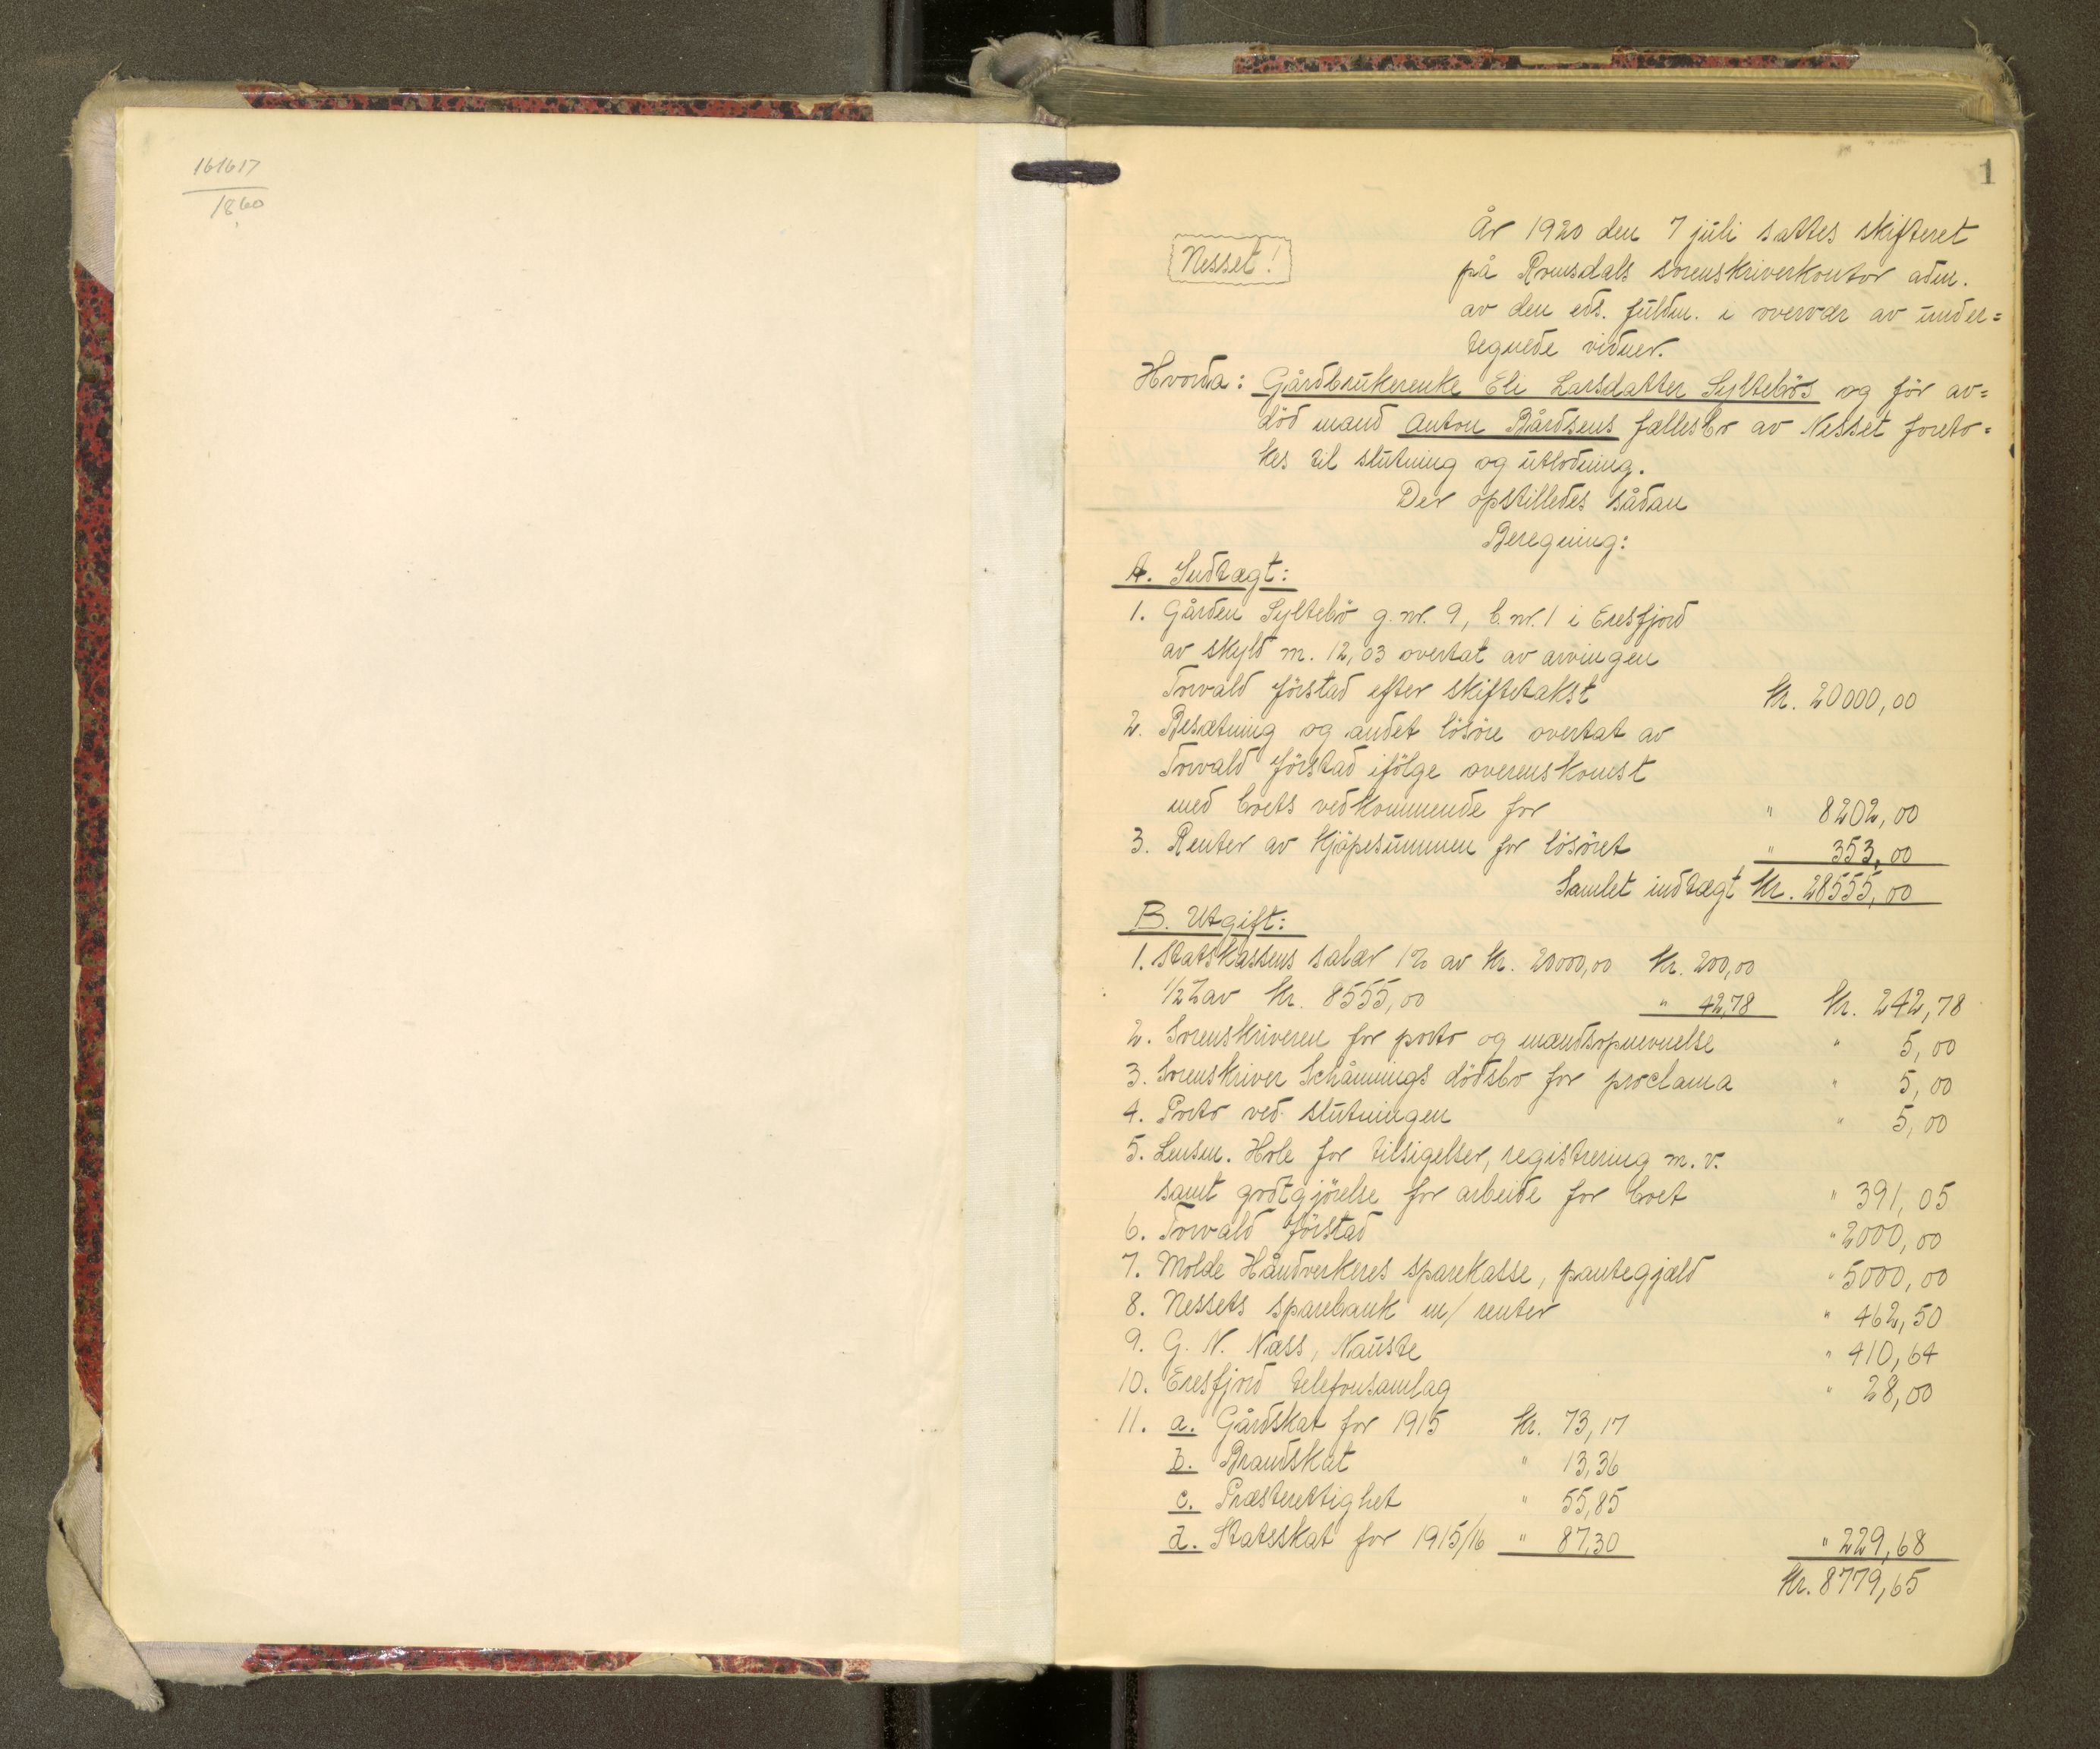 161617
1860
1
Nesset!
År 1920 den 7 juli sattes skifteret
på Romsdals sorenskriverkontor adm.
av den eds. fuldm. i overvær av under=
tegnede vidner.
Hvorda: Gårdbrukerenke Eli Larsdatter Syltebös og för av=
död mand Anton Bårdsens fællesbo av Nesset foreto=
kes til slutning og utlodning.
Der opstilledes sådan
Beregning:
A. Indtægt:
1. Gården Syltebö g. nr. 9, b. nr. 1 i Eresfjord
av skyld m. 12,03 overtat av arvingen
Torvald Jörstad efter skiftetakst kr. 20000,00
2. Besætning og andet lösöre overtat av
Torvald Jörstad ifölge overenskomst
med boets vedkommende for " 8202,00
3. Renter av kjöpesummen for lösöret " 353,00
Samlet indtægt kr. 28555,00
B. Utgift:
1. Statskassens salær 1% av kr. 20000,00 kr. 200,00
1/2 % av kr. 8555,00 " 42,78 kr. 242,78
2. Sorenskriveren for porto og mændsopnevnelse " 5,00
3. Sorenskriver Schånnings dödsbo for proclama " 5,00
4. Porto ved slutningen " 5,00
5. Lensm. Hole for tilsigelser, registrering m. v.
samt godtgjörelse for arbeide for boet " 391,05
6. Torvald Jörstad " 2000,00
7. Molde Håndverkeres sparekasse, pantegjæld " 5000,00
8. Nessets sparebank m/ renter " 462,50
9. G. N. Næss, Nauste " 410,64
10. Eresfjord telefonsamlag " 28,00
11. a. Gårdskat for 1915 kr. 73,17
b. Brandskat " 13,36
c. Præsterettighet " 55,85
d. Statsskat for 1915/16 " 87,30 " 229,68
kr. 8779,65